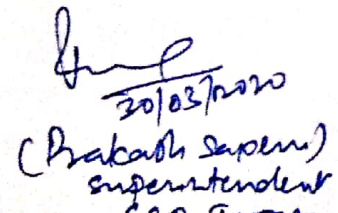 30/03/2020
(Prakash Saperu)
Superintendent